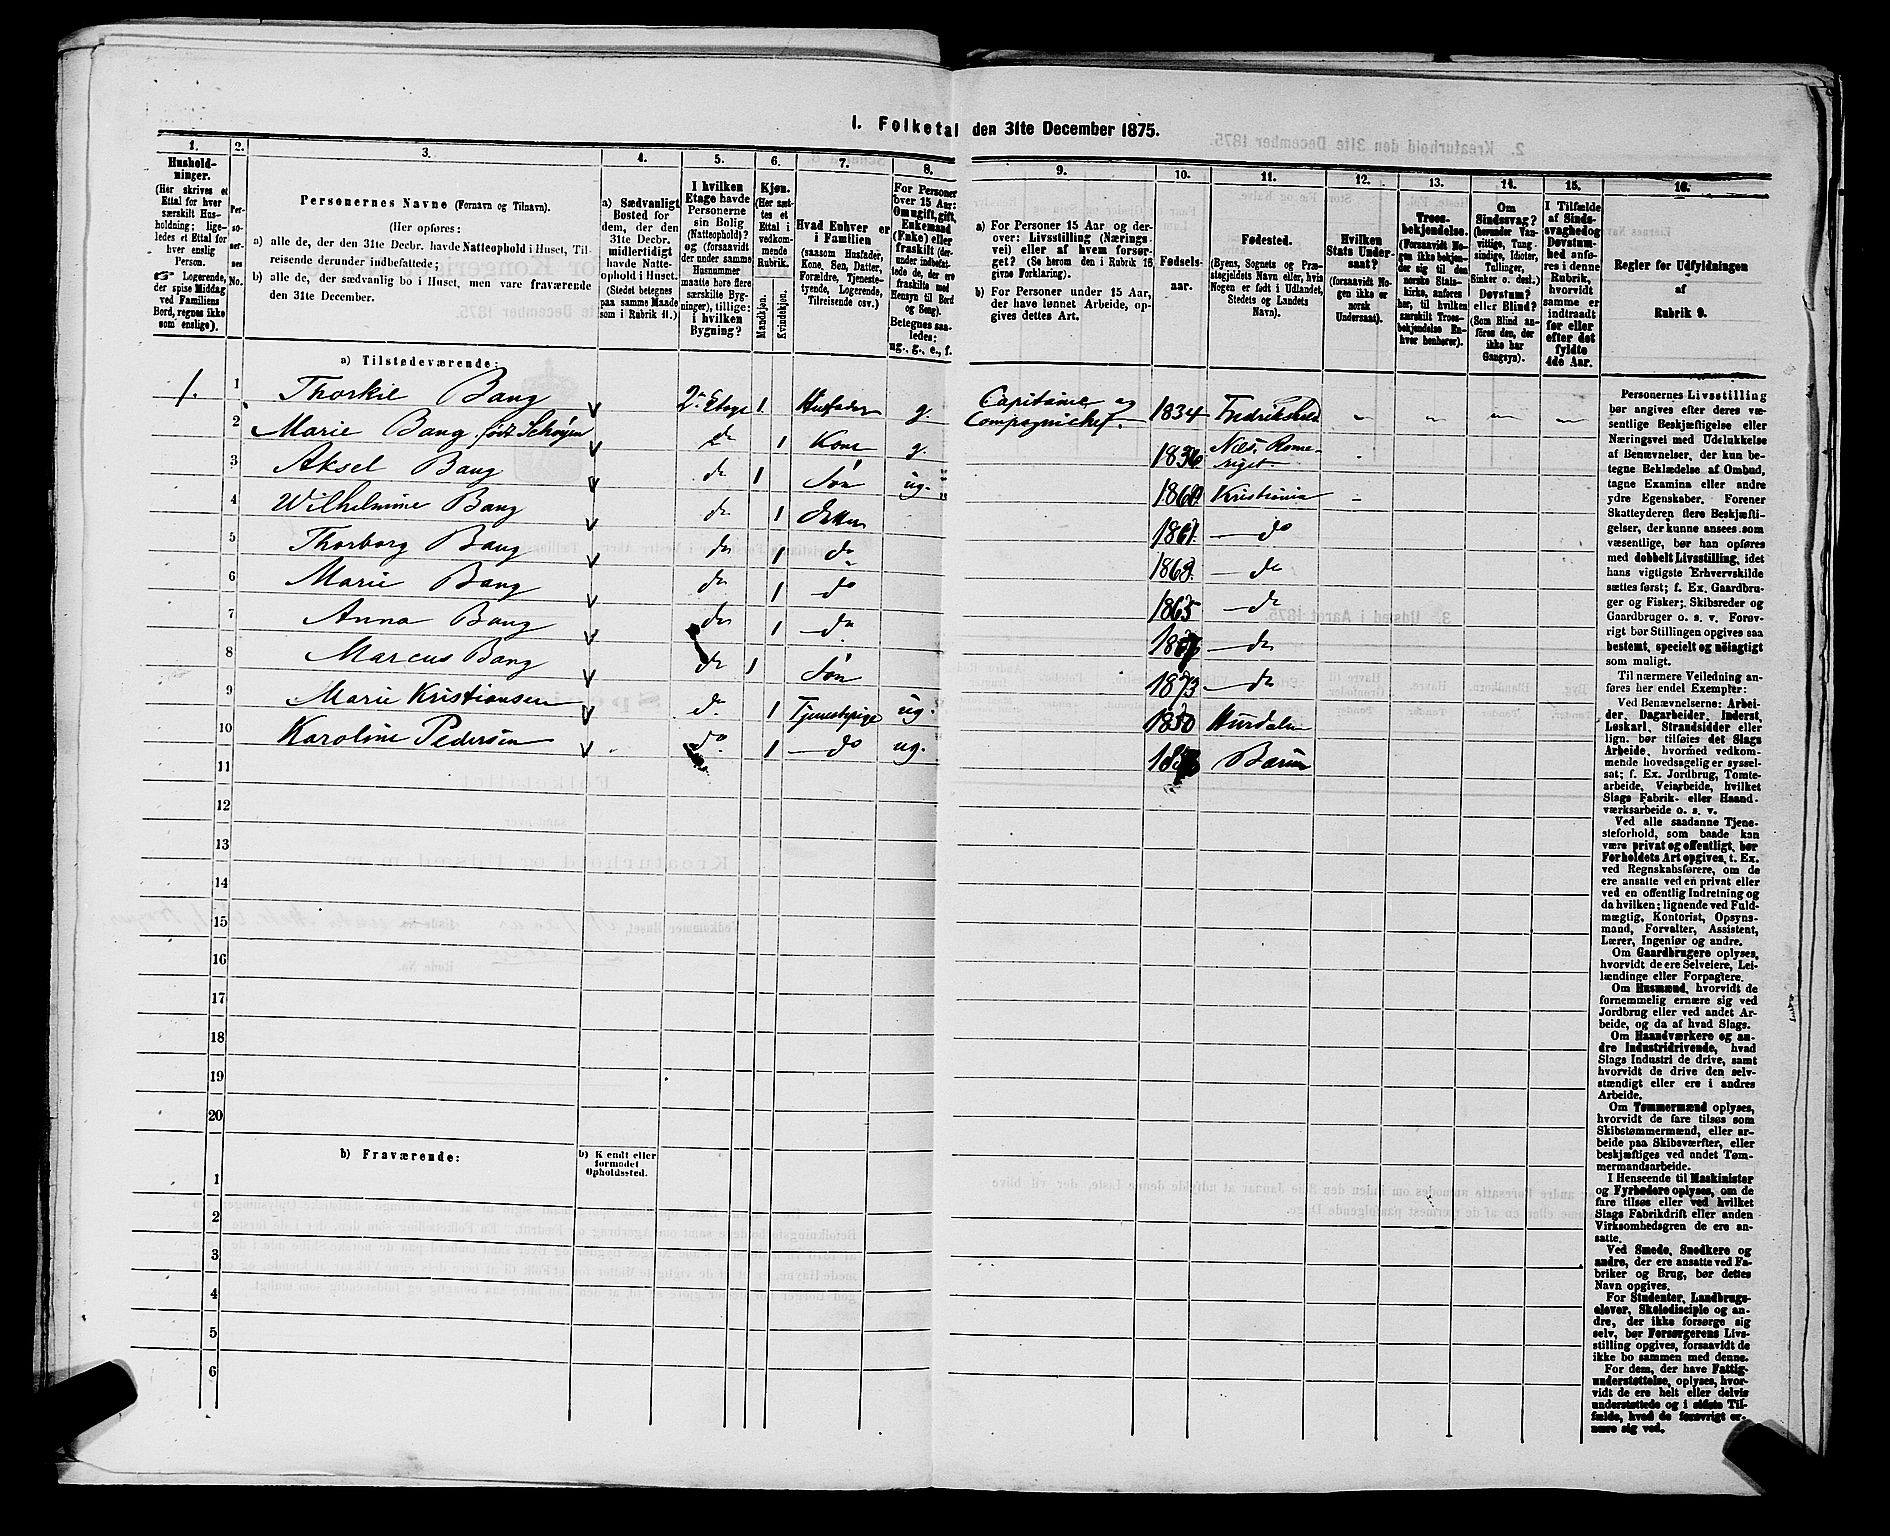 I. Folketal den 31te December 1875.
1. 2. 3. 4. 5. 6. 7. 8. 9. 10. 11. 12. 13. 14. 15. 16.
Husholdninger.
(Her skrives et
Ettal for hver
særskilt Husholdning;
ligeledes et Ettal for
hver enslig
Person.
☞ Logerende,
der spise Middag
ved Familiens
Bord, regnes ikke
som enslige).
Personernes No.
Personernes Navne (Fornavn og Tilnavn).
(Her opføres:
a) alle de, der den 31te Decbr. havde Natteophold i Huset, Tilreisende derunder indbefattede;
b) alle de, der sædvanlig bo i Huset, men vare fraværende
den 31te December.
a) Sædvanligt
Bosted for
dem, der den
31te Decbr.
midlertidigt
havde Natteophold i Huset.
(Stedet betegnes
paa samme Maade
som i Rubrik 11.)
I hvilken
Etage havde
Personerne
sin Bolig
(Natteophold)?
og (forsaavidt
der under samme
Husnummer
maatte høre flere
særskilte Bygninger), tillige:
i hvilken
Bygning?
Kjøn.
(Her sættes et
Ettal i
vedkommende
Rubrik.
Mandkjøn.
Kvindekjøn.
Hvad Enhver er
i Familien
(saasom Husfader,
Kone, Søn, Datter,
Forældre, Tjenestetyende, Logerende,
Tilreisende osv.)
For Personer
over 15 Aar:
Om ugift, gift,
Enkemand
(Enke) eller
fraskilt (derunder indbefattede de, der ere
fraskilte med
Hensyn til Bord
og Seng).
Betegnes saaledes:
ug., g., e., f.
a) For Personer 15 Aar og derover: Livsstilling (Næringsvei) eller af hvem forsørget? (Se herom den i Rubrik 16
givne Forklaring).
b) For Personer under 15 Aar,
der have lønnet Arbeide, opgives dettes Art.
Fødselsaar.
Fødested.
(Byens, Sognets og Præstegjeldets Navn, eller, hvis
Nogen er født i Udlandet,
Stedets og Landets
Navn).
Hvilken
Stats Undersaat?
(forsaavidt Nogen ikke er
norsk
Undersaat).
Troesbekjendelse.
(Forsaavidt Nogen ikke bekjender sig til den
norske Statskirke, anføres
her, til hvilken
særskilt Troesbekjendelse Enhver henhører).
Om
Sindssvag?
(herunder Vanvittige, Tungsindige, Idioter,
Tullinger,
Sinker o. desl.)
Døvstum?
eller Blind?
(Som Blind anføres den, der
ikke har
Gangsyn).
I Tilfælde
af Sindssvaghed og
Døvstumhed anføres i denne
Rubrik,
hvorvidt
samme er
indtraadt
før eller
efter det
fyldte
4de Aar.
Regler for Udfyldningen
af
Rubrik 9.
a) Tilstedeværende:
1. 1 Thorkil Bang 2. Etage 1 Husfader g. Capitaine og Compagnichef. 1834 Fredrikshald
2 Marie Bang født Schøyen do 1 Kone g. 1836 Næs. Romeriget
3 Aksel Bang do 1 Søn ug. 1860 Kristiania
4 Wilhelmine Bang do 1 Datter 1861 do
5 Thorborg Bang do 1 do 1863 do
6 Marie Bang do 1 do 1865 do
7 Anna Bang do 1 do do
8 Marcus Bang do 1 Søn 1873 do
9 Marie Kristiansen do 1 Tjenestepige ug. 1850 Hurdalen
10 Karoline Pedersen do 1 do ug. Bærum
11
12
13
14
15
16
17
18
19
20
b) Fraværende:
b) Kjendt eller
formodet
Opholdssted.
1
2
3
4
5
6
Personernes Livsstilling
bør angives efter deres væsentlige Beskjæftigelse eller
Næringsvei med Udelukkelse
af Benævnelser, der kun betegne Beklædelse af Ombud,
tagne Examina eller andre
ydre Egenskaber. Forener
Skatteyderen flere Beskjæftigelser, der kunne ansees som
væsentlige, bør han opføres
med dobbelt Livsstilling, idet
hans vigtigste Erhvervskilde
sættes først; f. Ex. Gaardbruger og Fisker; Skibsreder og
Gaardbruger o. s. v. Forøvrigt bør Stillingen opgives saa
bestemt, specielt og nöiagtigt
som muligt.
Til nærmere Veiledning anføres her endel Exempter:
Ved Benævnelserne: Arbeider, Dagarbeider, Inderst,
Løskarl, Strandsidder eller
lign. bør tilføies det Slags
Arbeide, hvormed vedkommende hovedsagelig er sysselsat; f. Ex. Jordbrug, Tomtearbeide, Veiarbeide, hvilket
Slags Fabrik- eller Haandværksarbeide o. s. v.
Ved alle saadanne Tjenesteforhold, som baade kan
være privat og offentligt, bør
Forholdets Art opgives, t. Ex.
ved Regnskabsførere, om de
ere ansatte ved en privat eller
ved en offentlig Indretning og
da hvilken; lignende ved Fuldmægtig, Kontorist, Opsynsmand, Forvalter, Assistent,
Lærer, Ingeniør og andre.
Om Gaardbrugere oplyses,
hvorvidt de ere Selveiere, Leilændinge eller Forpagtere.
Om Husmænd, hvorvidt de
fornemmelig ernære sig ved
Jordbrug eller ved andet Arbeide, og da af hvad Slags.
Om Haandværkere og andre Industridrivende, hvad
Slags Industri de drive, samt
hvorvidt de drive den selvstændigt eller ere i andres
Arbeide.
Om Tømmermænd oplyses,
hvorvidt de fare tilsøs som
Skibstømmermænd, eller arbeide paa Skibsværfter, eller
beskjæftiges ved andet Tømmermandsarbeide.
I Henseende til Maskinister
og Fyrbødere oplyses, om de
fare tilsøs eller ved hvilket
Slags Fabrikdrift eller anden
Virksomhedsgren de ere ansatte.
Ved Smede, Snedkere og
andre, der ere ansatte ved Fabriker og Brug, bør dettes
Navn opgives.
For Studenter, Landbrugselever, Skoledisciple og andre, der ikke forsørge sig
selv, bør Forsørgerens Livsstilling opgives, forsaavidt de
ikke bo sammen med denne.
For dem, der have Fattigunderstøttelse, oplyses, hvorvidt de ere helt eller delvis
understøttede og i sidste Tilfælde, hvad de forøvrigt ernære sig ved.